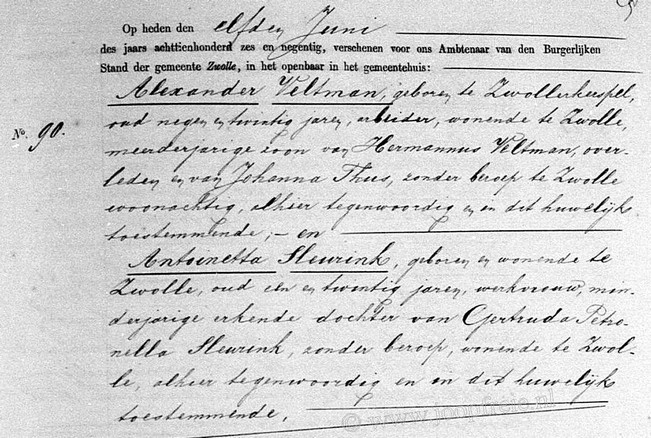 Op heden den elfden Juni
des jaars achttienhonderd zes en negentig, verschenen voor ons Ambtenaar van den Burgerlijken
Stand der gemeente Zwolle, in het openbaar in het gemeentehuis:
Alexander Veltman, geboren te Zwollerkerspel,
No. 90.
oud negen en twintig jaren, arbeider, wonende te Zwolle,
meerderjarige zoon van Hermannus Veltman, over-
leden en van Johanna Thus, zonder beroep te Zwolle
woonachtig, alhier tegenwoordig en in dit huwelijk
toestemmende; - en
Antoinetta Sleurink, geboren en wonende te
Zwolle, oud een en twintig jaren, werkvrouw, min-
derjarige erkende dochter van Gertruda Petro-
nella Sleurink, zonder beroep, wonende te Zwol-
le, alhier tegenwoordig en in dit huwelijk
toestemmende,